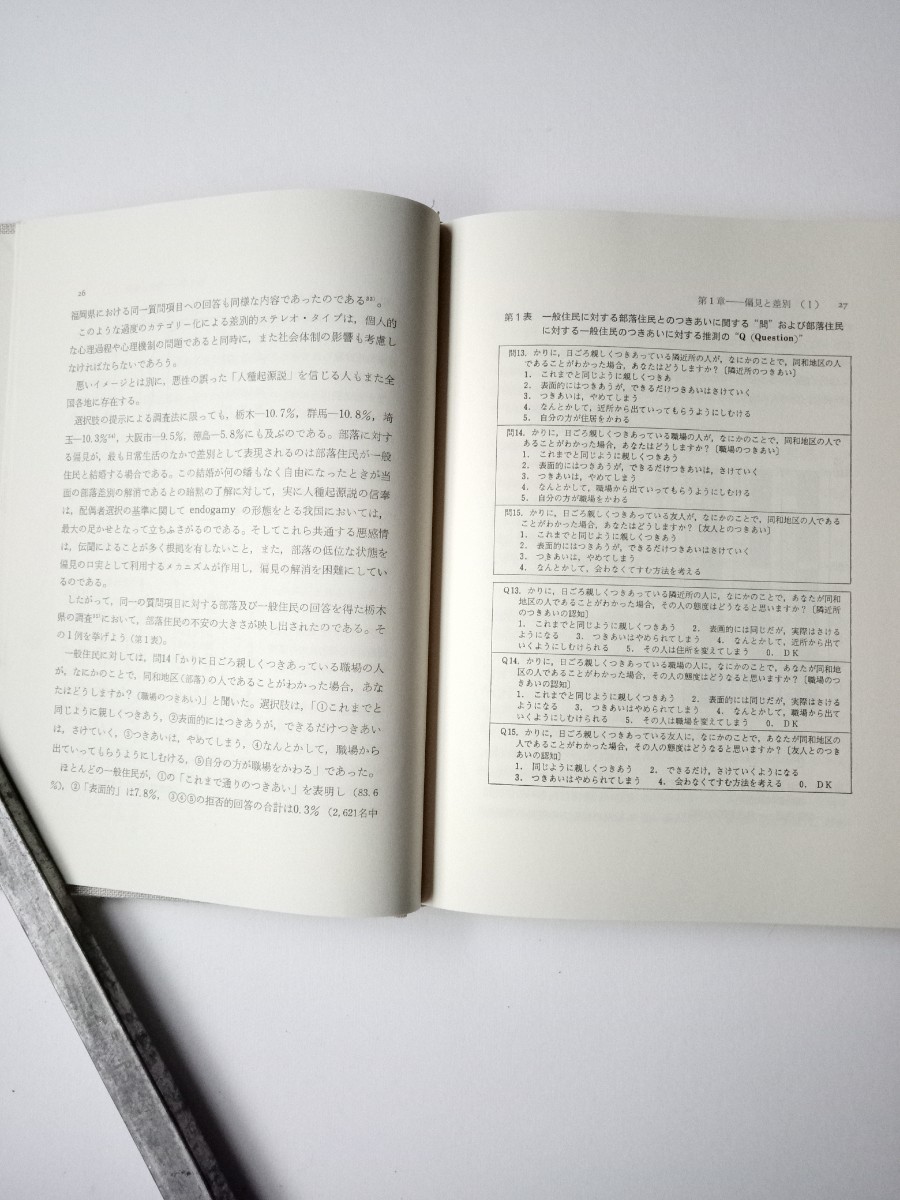 26
福岡県における同一質問項目への回答も同様な内容であったのである。
このような過度のカテゴリー化による差別的ステレオ・タイプは，個人的
な心理過程や心理機制の問題であると同時に，また社会体制の影響も考慮し
なければならないであろう。
悪いイメージとは別に，悪性の誤った「人種起源説」を信じる人もまた全
国各地に存在する。
選択肢の提示による調査法に限っても，栃木―10.7%，群馬―10.8%，埼
玉―10.3%，大阪市―9.5%，徳島―5.8%にも及ぶのである。部落に対す
る偏見が，最も日常生活のなかで差別として表現されるのは部落住民が一般
住民と結婚する場合である。この結婚が何の憚もなく自由になったときが当
面の部落差別の解消であるとの暗黙の了解に対して，実に人種起源説の信奉
は，配偶者選択の基準に関して endogamy の形態をとる我国においては，
最大の足かせとなって立ちふさがるのである。そしてこれら共通する悪感情
は，伝聞によることが多く根拠を有しないこと，また，部落の低位な状態を
偏見の口実として利用するメカニズムが作用し，偏見の解消を困難にしてい
るのである。
したがって，同一の質問項目に対する部落及び一般住民の回答を得た栃木
県の調査において，部落住民の不安の大きさが映し出されたのである。そ
の1例を挙げよう（第1表）。
一般住民に対しては，問14「かりに日ごろ親しくつきあっている職場の人
が，なにかのことで，同和地区（部落）の人であることがわかった場合，あな
たはどうしますか？（職場のつきあい）」と聞いた。選択肢は，「①これまでと
同じように親しくつきあう，②表面的にはつきあうが，できるだけつきあい
は，さけていく，③つきあいは，やめてしまう，④なんとかして，職場から
出ていってもらうようにしむける，⑤自分の方が職場をかわる」であった。
ほとんどの一般住民が，①の「これまで通りのつきあい」を表明し（83.6
%），②「表面的」は7.8%，③④⑤の拒否的回答の合計は0.3%（2,621名中
第1章――偏見と差別（1） 27
第1表 一般住民に対する部落住民とのつきあいに関する“問”および部落住民
に対する一般住民のつきあいに対する推測の“Q（Question）”
問13. かりに，日ごろ親しくつきあっている隣近所の人が，なにかのことで，同和地区の人
であることがわかった場合，あなたはどうしますか？［隣近所のつきあい］
1. これまでと同じように親しくつきあ
2. 表面的にはつきあうが，できるだけつきあいはさけていく
3. つきあいは，やめてしまう
4. なんとかして，近所から出ていってもらうようにしむける
5. 自分の方が住居をかわる
問14. かりに，日ごろ親しくつきあっている職場の人が，なにかのことで，同和地区の人で
あることがわかった場合，あなたはどうしますか？［職場のつきあい］
1. これまでと同じように親しくつきあう
2. 表面的にはつきあうが，できるだけつきあいは，さけていく
3. つきあいは，やめてしまう
4. なんとかして，職場から出ていってもらうようにしむける
5. 自分の方が職場をかわる
問15. かりに，日ごろ親しくつきあっている友人が，なにかのことで，同和地区の人である
ことがわかった場合，あなたはどうしますか？［友人とのつきあい］
1. これまでと同じように親しくつきあう
2. 表面的にはつきあうが，できるだけつきあいはさけていく
3. つきあいは，やめてしまう
4. なんとかして，会わなくてすむ方法を考える
Q13. かりに，日ごろ親しくつきあっている隣近所の人に，なにかのことで，あなたが同和
地区の人であることがわかった場合，その人の態度はどうなると思いますか？［隣近所
のつきあいの認知］
1. これまでと同じように親しくつきあう 2. 表面的には同じだが，実際はさける
ようになる 3. つきあいはやめられてしまう 4. なんとかして，近所から出てい
くようにしむけられる 5. その人は住所を変えてしまう 0. DK
Q14. かりに，日ごろ親しくつきあっている職場の人に，なにかのことで，あなたが同和地
区の人であることがわかった場合，その人の態度はどうなると思いますか？［職場のつ
きあいの認知］
1. これまでと同じように親しくつきあう 2. 表面的には同じだが，実際はさける
ようになる 3. つきあいはやめられてしまう 4. なんとかして，職場から出て
いくようにしむけられる 5. その人は職場を変えてしまう 0. DK
Q15. かりに，日ごろ親しくつきあっている友人に，なにかのことで，あなたが同和地区の
人であることがわかった場合，その人の態度はどうなると思いますか？［友人とのつき
あいの認知］
1. 同じように親しくつきあう 2. できるだけ，さけていくようになる
3. つきあいはやめられてしまう 4. 会わなくてすむ方法を考える 0. DK